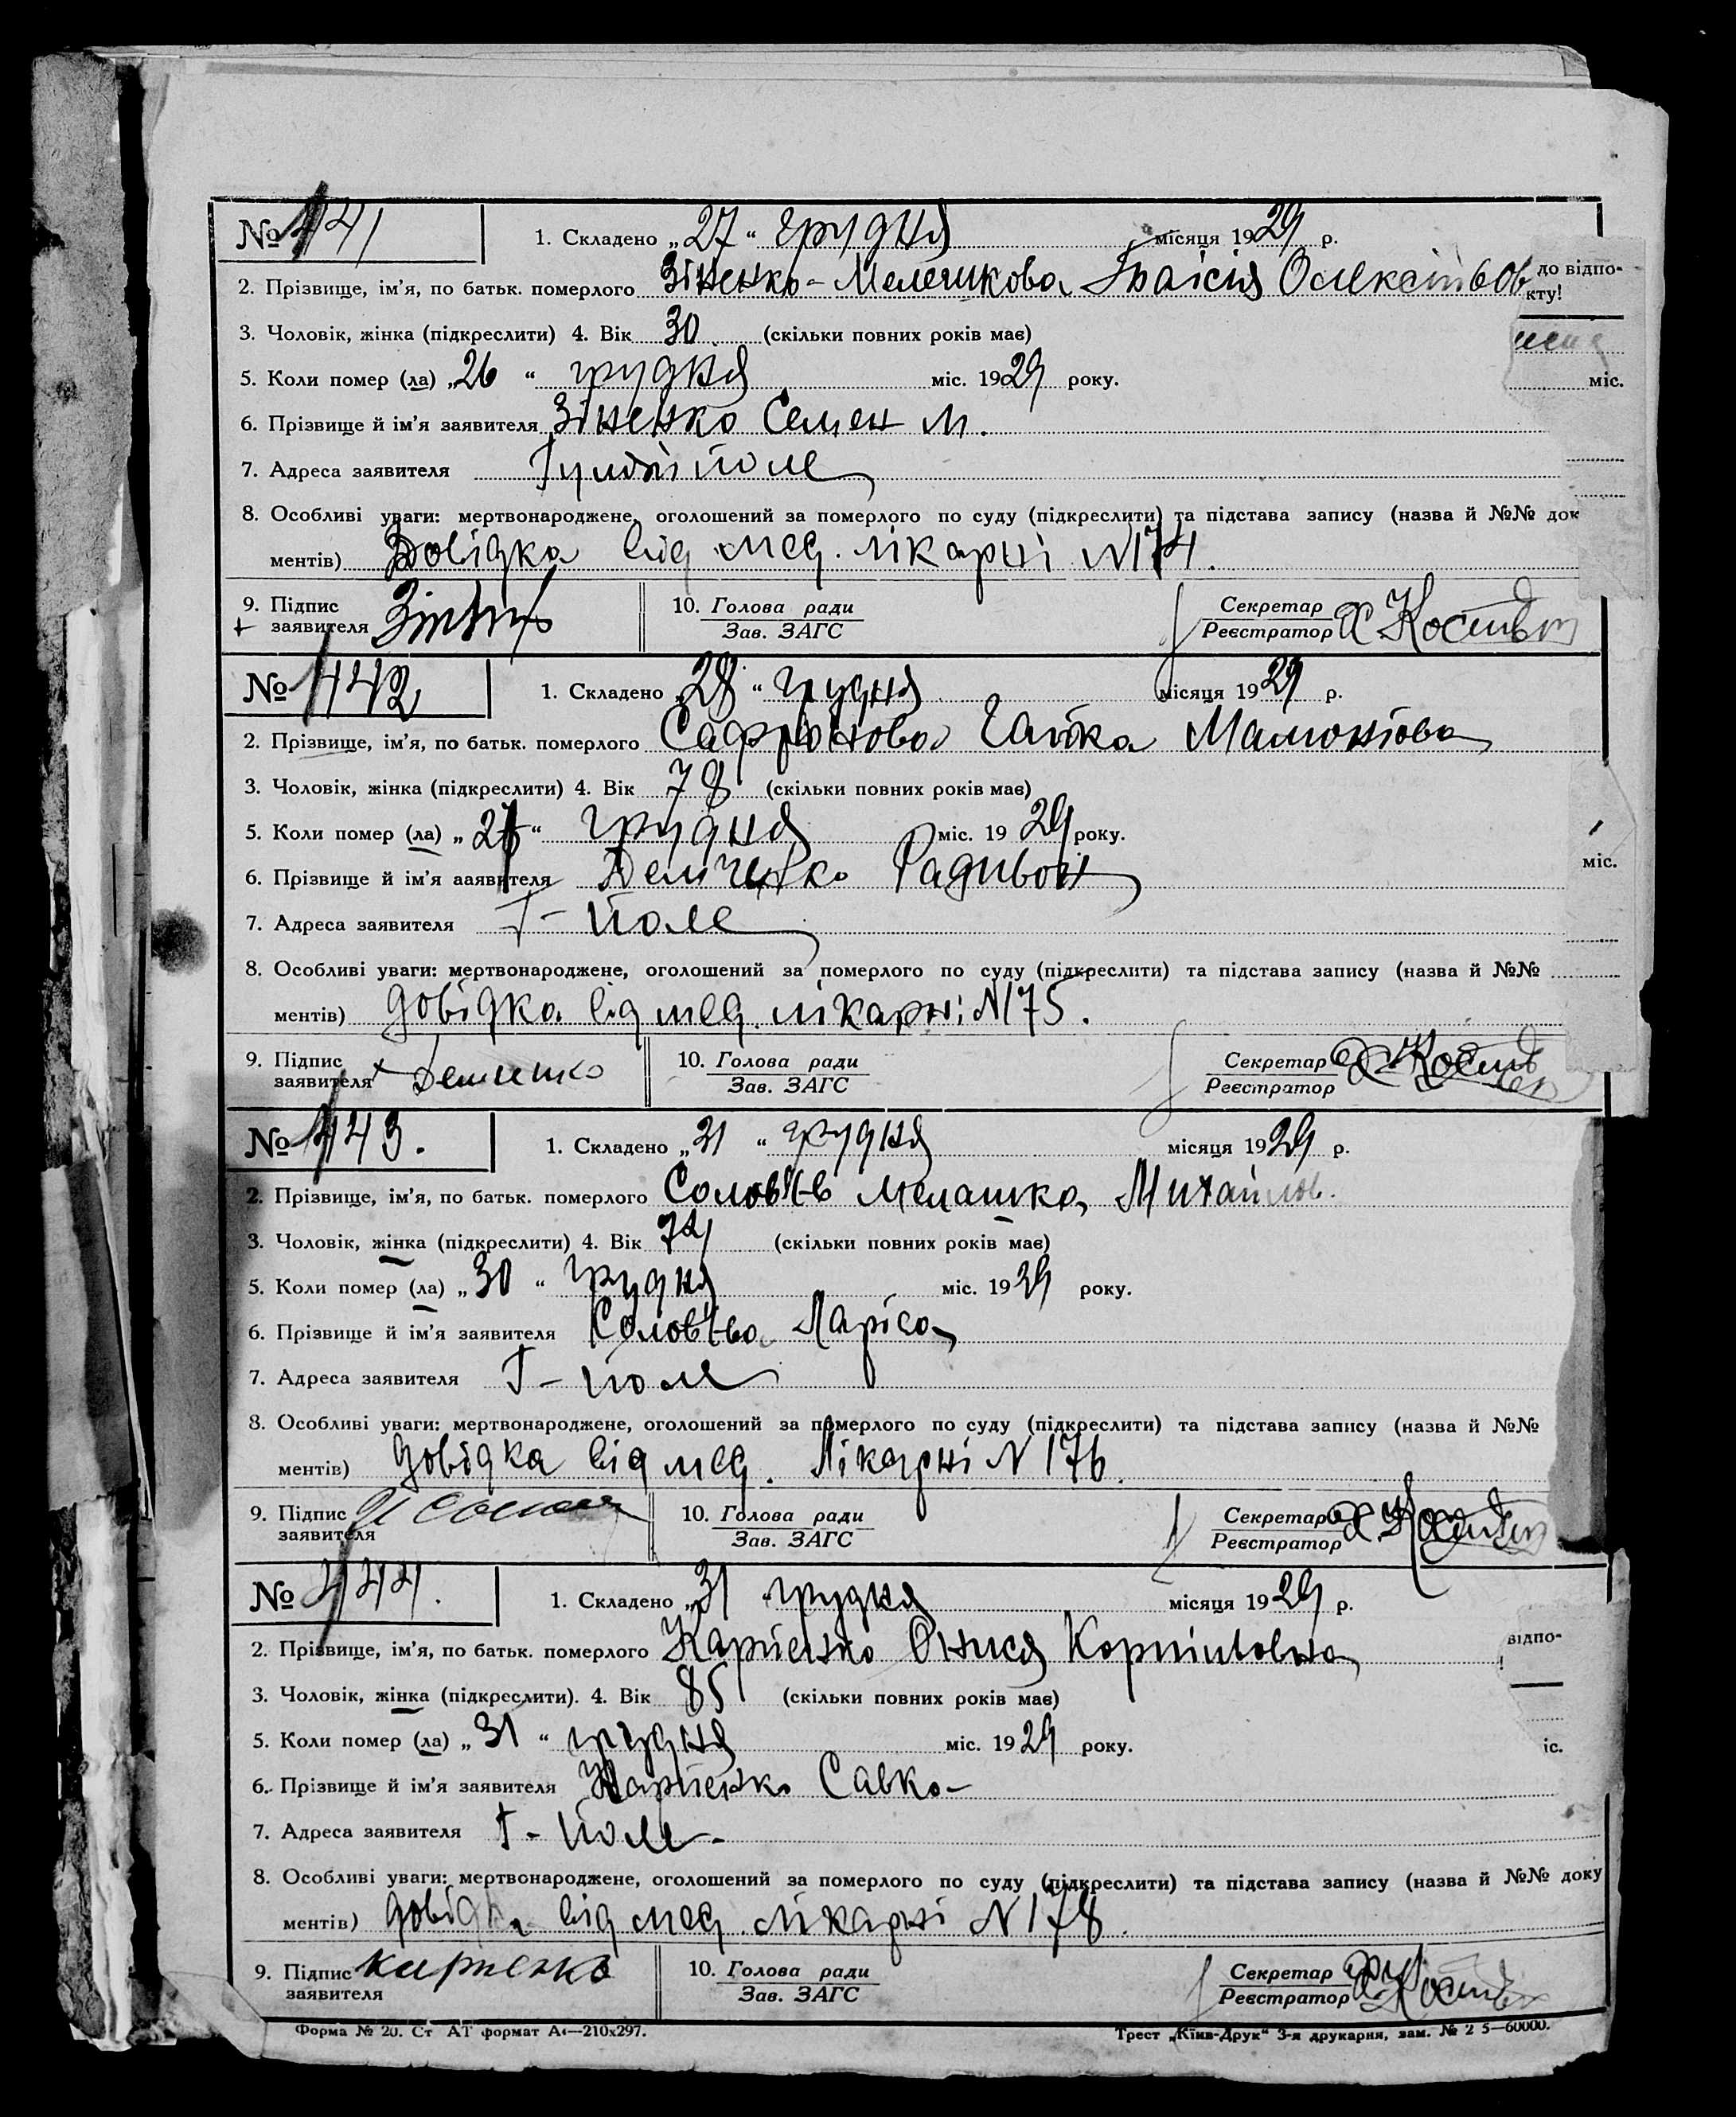 № 441
1. Складено „27“ грудня місяця 1929 р.
2. Прізвище, ім'я, по батьк. померлого Зіненко-Мелешкова
до відпо-
кту!
3. Чоловік, жінка (підкреслити) 4. Вік 30 (скільки повних років має)
5. Коли помер (ла) „26“ грудня міс. 1929 року.
міс.
6. Прізвище й ім'я заявителя Зіненко Семен М.
7. Адреса заявителя Гуляйполе
8. Особливі уваги: мертвонароджене, оголошений за померлого по суду (підкреслити) та підстава запису (назва й №№ док
ментів) Довідка від мед. лікарні N174.
9. Підпис заявителя
10. Голова ради
Зав. ЗАГС
Секретар
Реєстратор
№ 442
1. Складено „28“ грудня місяця 1929 р.
2. Прізвище, ім'я, по батьк. померлого Сафронова
3. Чоловік, жінка (підкреслити) 4. Вік 78 (скільки повних років має)
5. Коли помер (ла) „ “ грудня міс. 1929 року.
міс.
6. Прізвище й ім'я заявителя Демченко Радивон
7. Адреса заявителя Г-поле
8. Особливі уваги: мертвонароджене, оголошений за померлого по суду (підкреслити) та підстава запису (назва й №№
ментів) довідка від мед. лікарні N175.
9. Підпис заявителя
10. Голова ради
Зав. ЗАГС
Секретар
Реєстратор
№ 443.
1. Складено „31“ грудня місяця 1929 р.
2. Прізвище, ім'я, по батьк. померлого Мелашка Михайлов.
3. Чоловік, жінка (підкреслити) 4. Вік 74 (скільки повних років має)
5. Коли помер (ла) „30“ грудня міс. 1929 року.
6. Прізвище й ім'я заявителя Ларіса
7. Адреса заявителя Г-поле
8. Особливі уваги: мертвонароджене, оголошений за померлого по суду (підкреслити) та підстава запису (назва й №№
ментів) довідка від мед. Лікарні N 176.
9. Підпис заявителя
10. Голова ради
Зав. ЗАГС
Секретар
Реєстратор
№ 444.
1. Складено „31 грудня місяця 1929 р.
2. Прізвище, ім'я, по батьк. померлого Карпенко Онися Корніївна
відпо-
3. Чоловік, жінка (підкреслити). 4. Вік 85 (скільки повних років має)
5. Коли помер (ла) „31“ грудня міс. 1929 року.
іс.
6. Прізвище й ім'я заявителя Карпенко Савка
7. Адреса заявителя Г-поле.
8. Особливі уваги: мертвонароджене, оголошений за померлого по суду (підкреслити) та підстава запису (назва й №№ доку
ментів) довідка від мед. лікарні N 178.
9. Підпис заявителя карпенко
10. Голова ради
Зав. ЗАГС
Секретар
Реєстратор
Форма № 20. Ст АТ формат А4—210х297.
Трест „Київ-Друк“ 3-я друкарня, зам. № 2 5—60000.